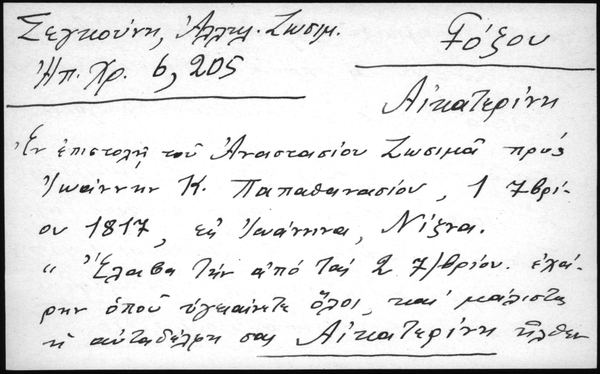 Σεγκούνη, Ἀλληλ. Ζωσιμ.
Ἠπ. Χρ. 6, 205
Τόξου
Αἰκατερίνη
Ἐν ἐπιστολῇ τοῦ Ἀναστασίου Ζωσιμᾶ πρὸς
Ἰωάννην Κ. Παπαθανασίου, 1 7βρί-
ου 1817, εἰς Ἰωάννινα, Νίζνα.
" Ἔλαβα τὴν ἀπὸ τὰς 2 7/βρίου. ἐχά-
ρην ὁποῦ ὑγειαίνετε ὅλοι, καὶ μάλιστα
ἡ αὐταδέλφη σας Αἰκατερίνη ἦλθεν